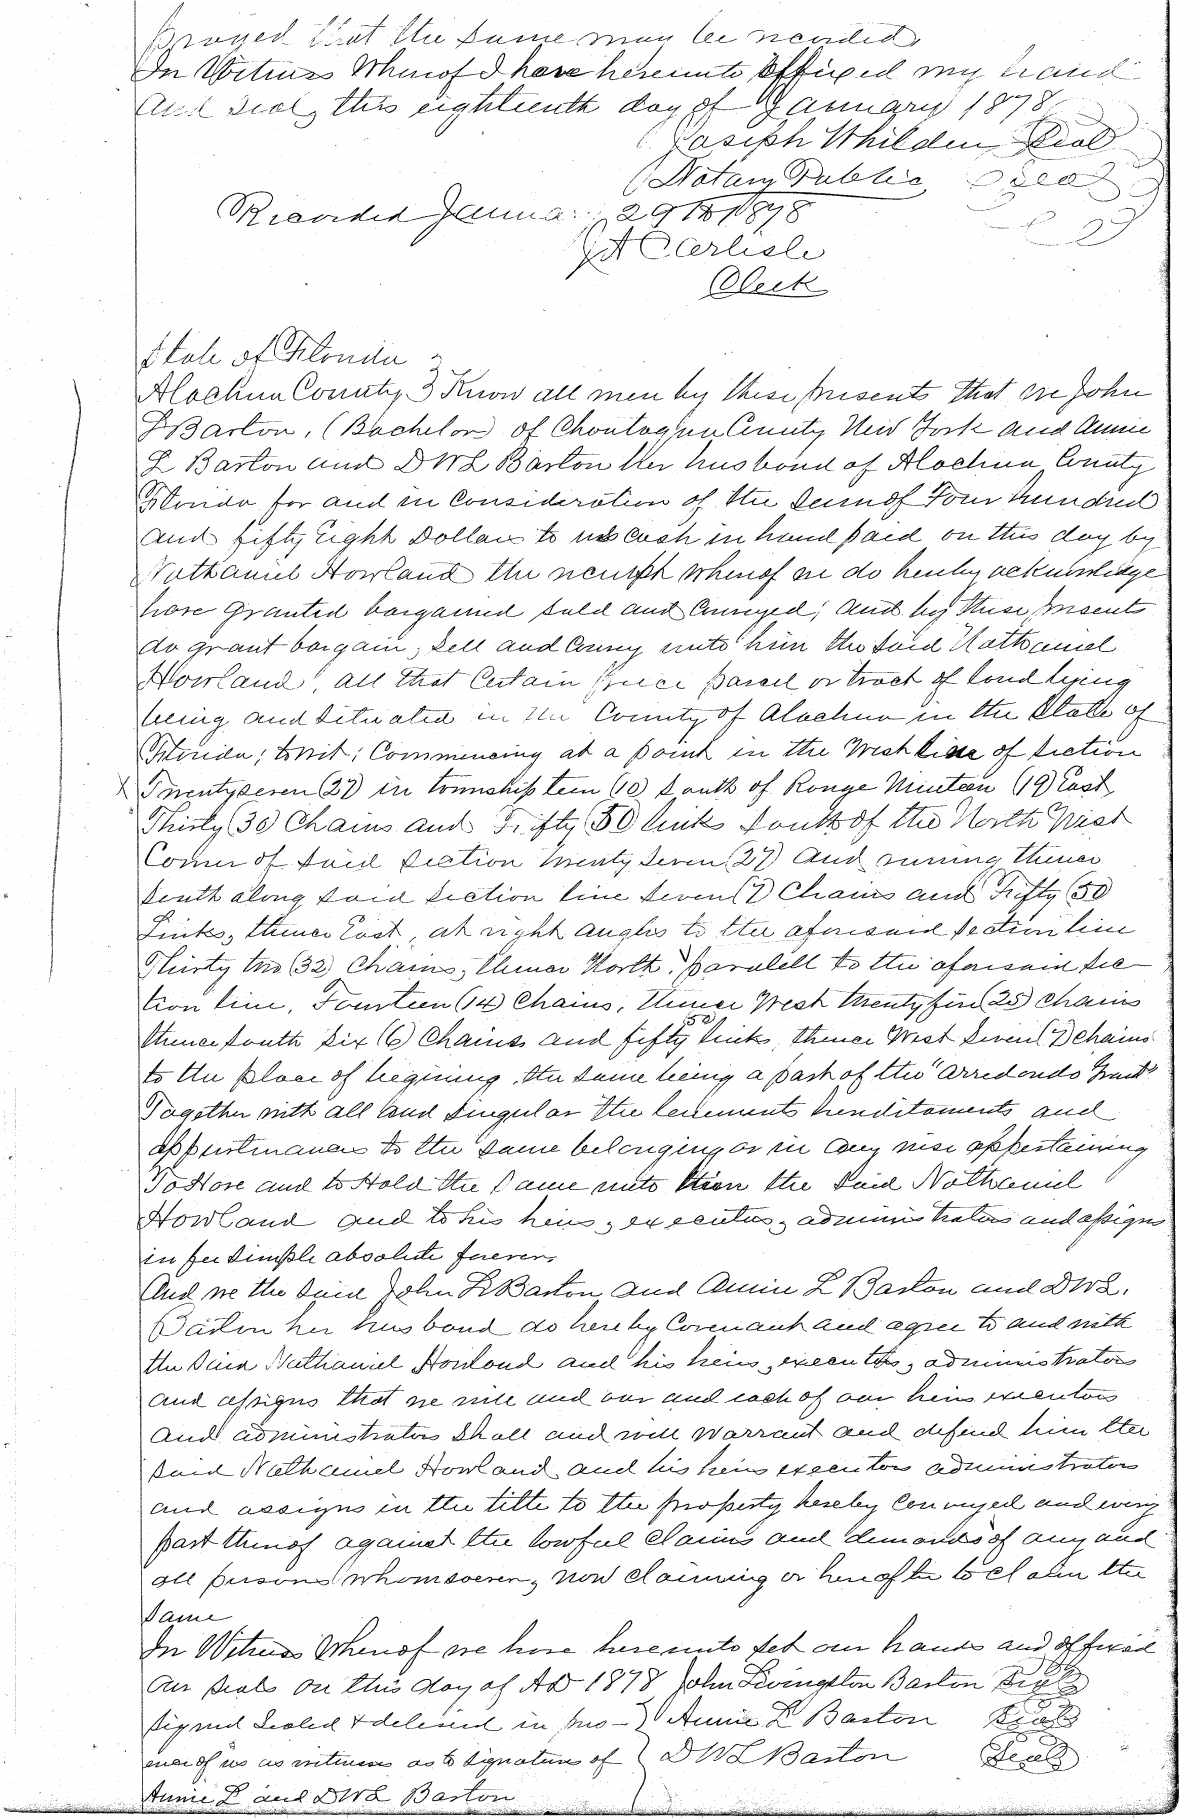 prayed that the same may be recorded,
In Witness Whereof I have hereunto affixed my hand
and seal, this eighteenth day of January 1878
Joseph Whilden Seal
Notary Public, Seal
Recorded Janua 29th 1878
J A Carlisle
Clerk
State of Florida
Alachua County } Know all men by these presents that we John
L Barton, (Bachelor) of Choutaqua County New York and Annie
L Barton and DWL Barton her husband of Alachua County
Florida for and in Consideration of the Sum of Four hundred
and fifty Eight Dollars to us cash in hand paid on this day by
Nathaniel Howland the receipt whereof we do hereby acknowledge
have granted bargained sold and Conveyed; and by these presents
do grant bargain, sell and Convey unto him the said Nathaniel
Howland, all that Certain piece parcel or tract of land lying
being and situated in the County of Alachua in the State of
Florida; towit; Commencing at a point in the West line of section
X Twenty seven (27) in township teen (10) South of Range Ninteen (19) East
Thirty (30) Chains and Fifty (50) links South of the North West
Corner of said section twenty seven (27) and running thence
South along said section line Seven (7) Chains and Fifty (50)
Links, thence East, at right angles to the aforesaid section line
Thirty two (32) Chains, thence North, paralell to the aforesaid sec
tion line, Fourteen (14) Chains, thence West twenty five (25) chains
thence South Six (6) Chains and fifty (50) links, thence West Seven (7) chains
to the place of begining, the same being a part of the "Arredondo Grant"
Together with all and singular the tenements hereditaments and
appurtenances to the same belonging or in any wise appertaining
To Have and to Hold the same unto him the said Nathaniel
Howland and to his heirs, executors, administrators and assigns
in fee simple absolute forever.
And we the said John L Barton and Annie L Barton and DWL.
Barton her husband do hereby Covenant and agree to and with
the said Nathaniel Howland and his heirs, executors, administrators
and assigns that we will and our and each of our heirs executors
and administrators shall and will warrant and defend him the
said Nathaniel Howland and his heirs executors administrators
and assigns in the title to the property hereby Conveyed and every
part thereof against the lawful claims and demands of any and
all persons whomsoever, now claiming or hereafter to claim the
same
In Witness Whereof we have hereunto set our hands and affixed
our seals on this day of AD 1878 John Livingston Barton Seal
Signed Sealed & delivered in pres- } Annie L Barton Seal
ence of us as witness as to signature of } DWL Barton Seal
Annie L and DWL Barton